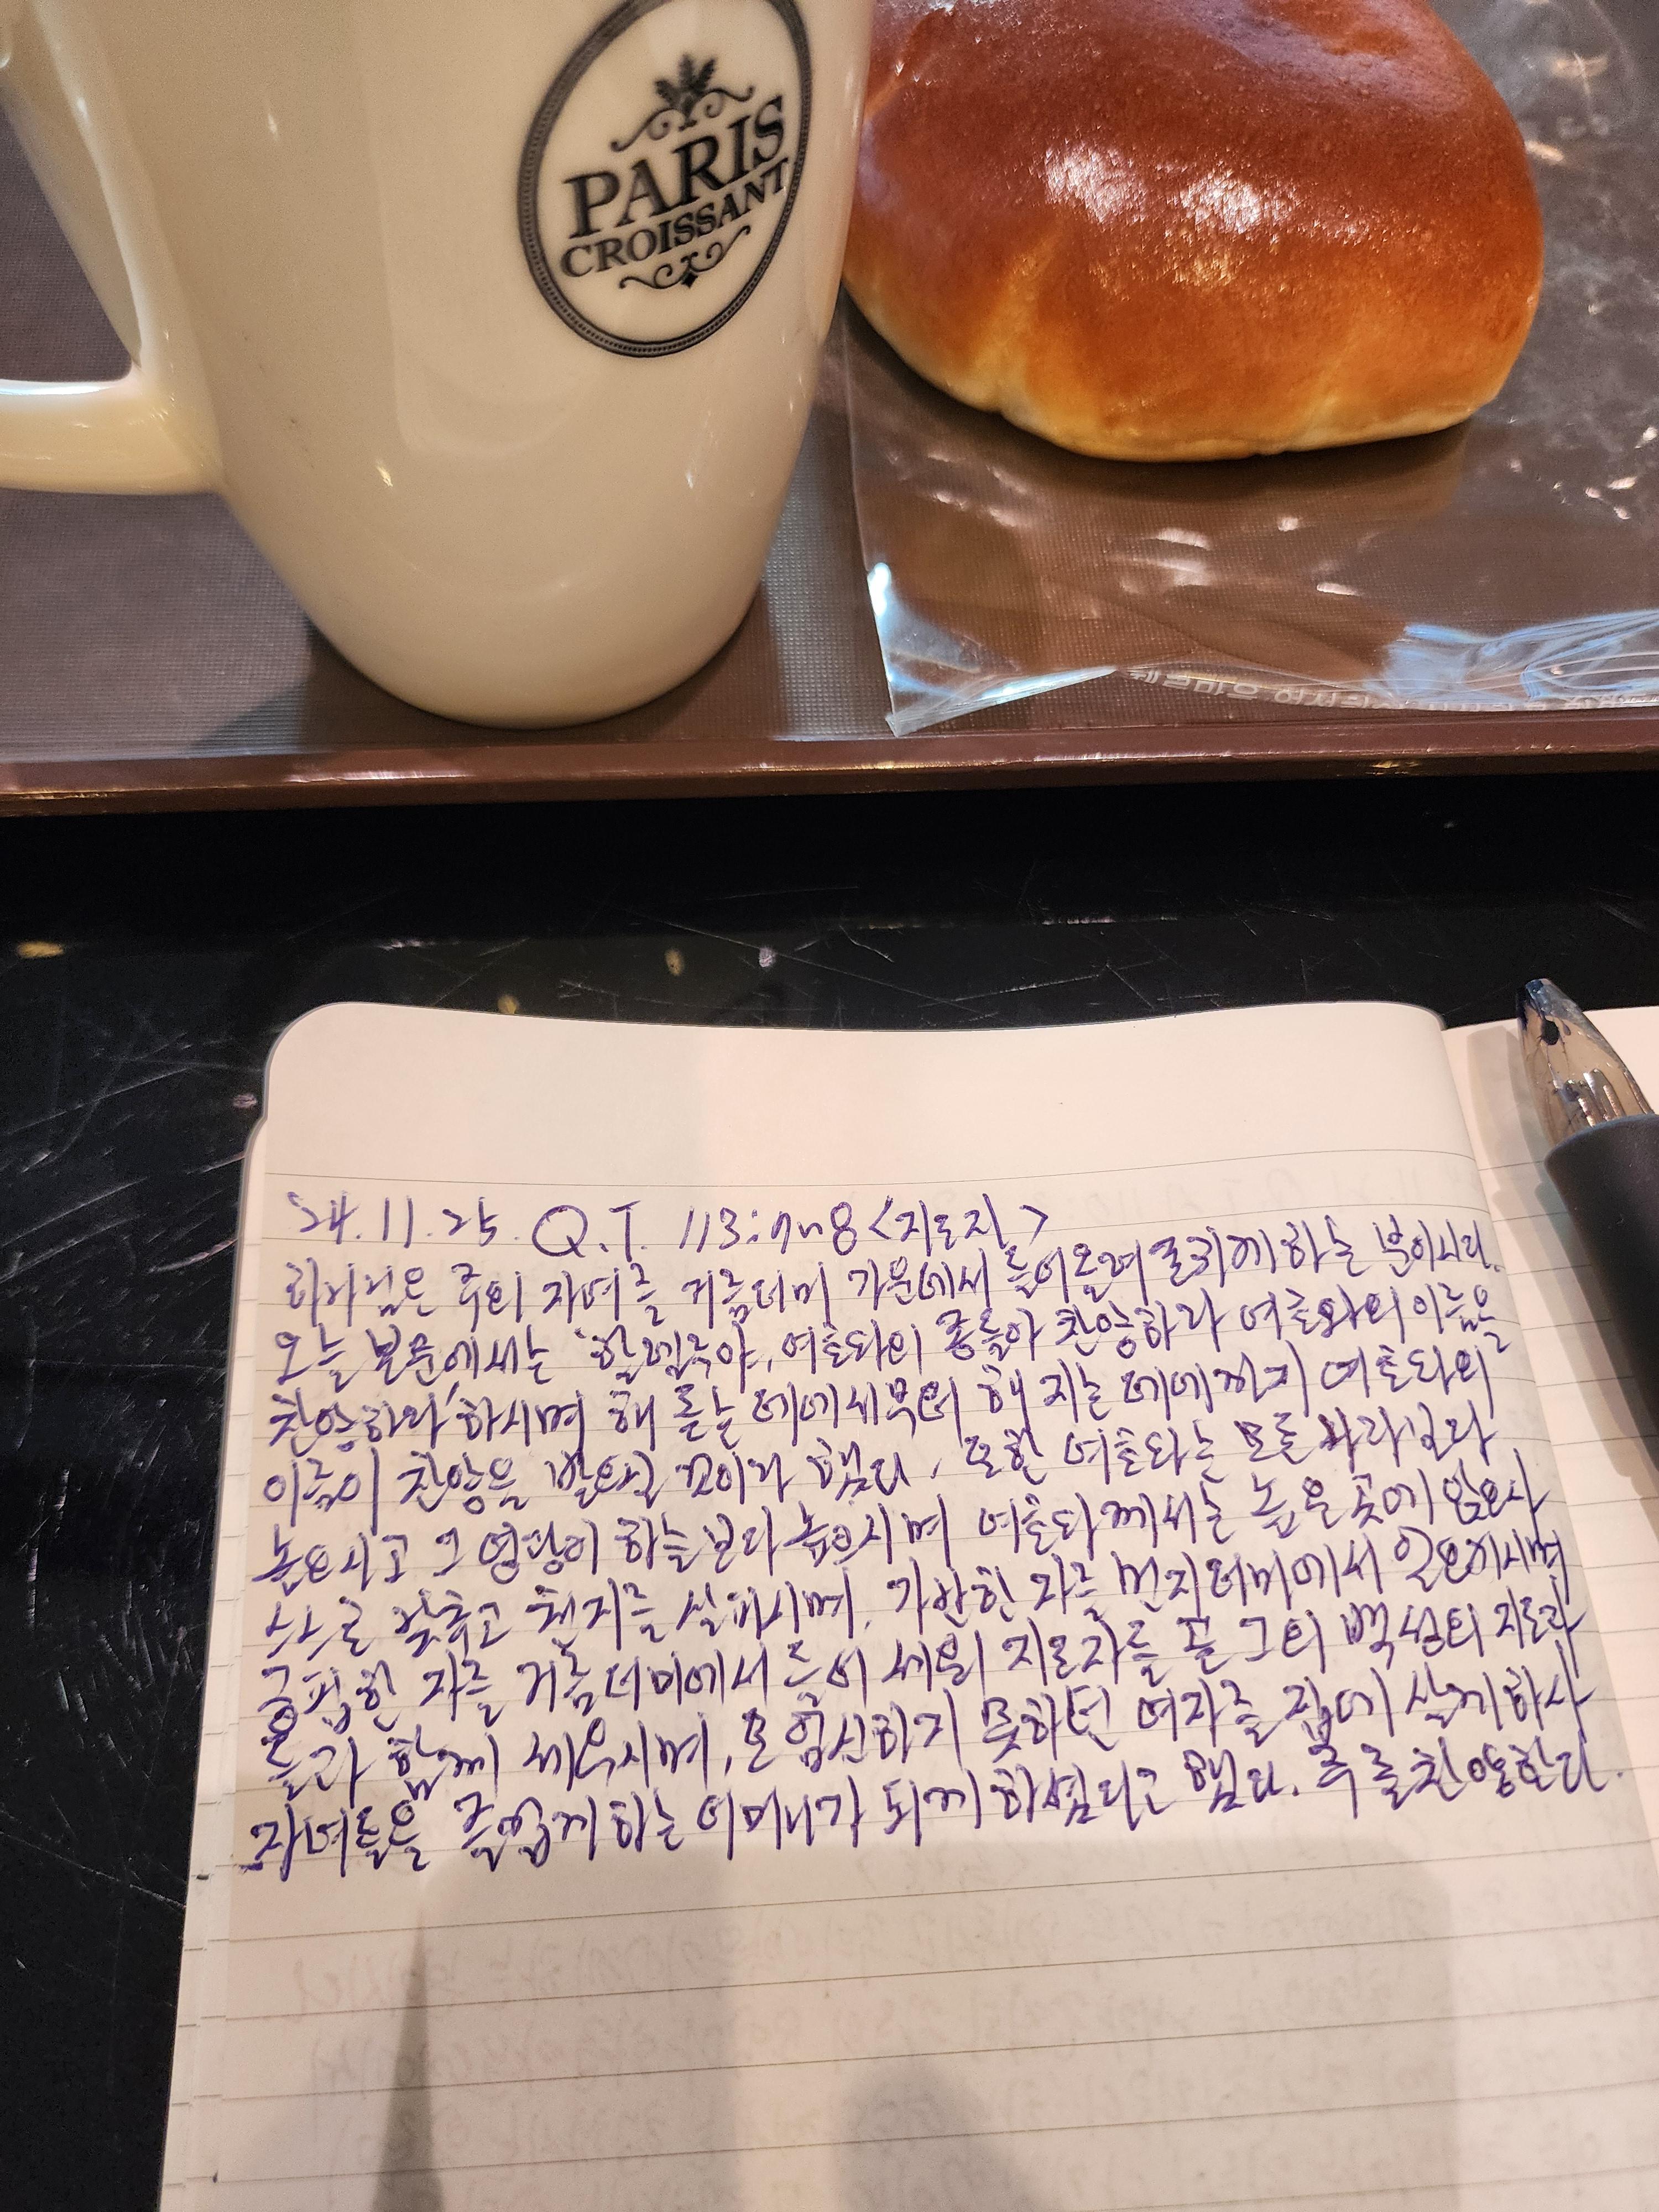 PARIS
CROISSANT
'24.11.25. Q.T. 113:1~8 <지도자>
하나님은 주의 자녀를 거름더미 가운데서 들어올려 존귀케하는 분이시다.
오늘 본문에서는 '할렐루야, 여호와의 종들아 찬양하라 여호와의 이름을
찬양하라' 하시며 해 돋는 데에서부터 해 지는 데에까지 여호와의
이름이 찬양을 받으실 것이라 했다. 또한 여호와는 모든 나라보다
높으시고 그 영광이 하늘보다 높으시며 여호와께서는 높은 곳에 앉으사
스스로 낮추고 천지를 살피시며, 가난한 자를 먼지더미에서 일으키시며
궁핍한 자를 거름더미에서 들어 세워 지도자들 곧 그의 백성의 지도자
들과 함께 세우시며, 또 임신하지 못하던 여자를 집에 살게하사
자녀들을 즐겁게하는 어머니가 되게 하셨다고 했다. 주를 찬양한다.